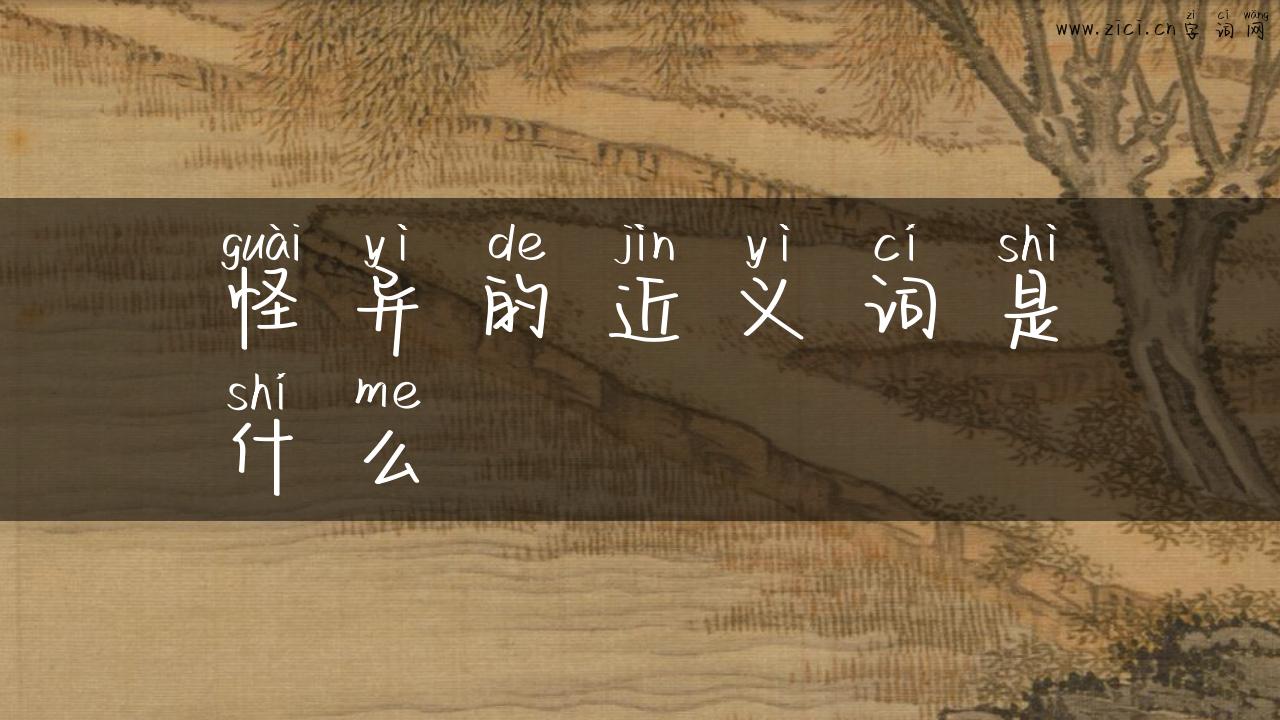 zì cí wǎng
www.zici.cn字词网
guài yì de jìn yì cí shì
怪异的近义词是
shí me
什么